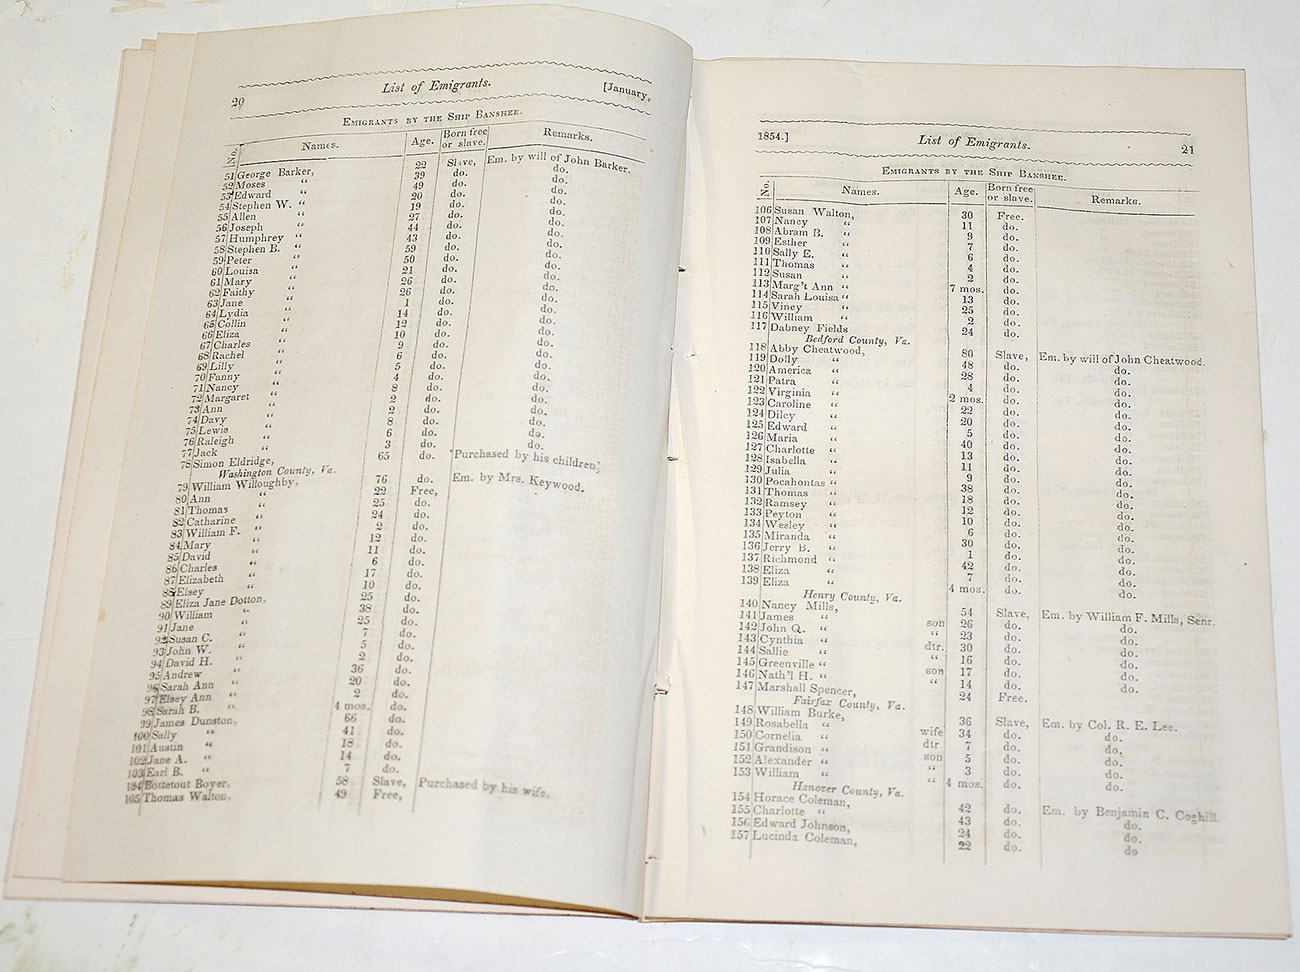 20 List of Emigrants. [January,
EMIGRANTS BY THE SHIP BANSHEE.
No. Names. Age. Born free or slave. Remarks.
51 George Barker, 22 Slave, Em. by will of John Barker.
52 Moses “ 39 do. do.
53 Edward “ 49 do. do.
54 Stephen W. “ 20 do. do.
55 Allen “ 19 do. do.
56 Joseph “ 27 do. do.
57 Humphrey “ 44 do. do.
58 Stephen B. “ 43 do. do.
59 Peter “ 59 do. do.
60 Louisa “ 50 do. do.
61 Mary “ 21 do. do.
62 Faithy “ 26 do. do.
63 Jane “ 26 do. do.
64 Lydia “ 1 do. do.
65 Collin “ 14 do. do.
66 Eliza “ 12 do. do.
67 Charles “ 10 do. do.
68 Rachel “ 9 do. do.
69 Lilly “ 6 do. do.
70 Fanny “ 5 do. do.
71 Nancy “ 4 do. do.
72 Margaret “ 8 do. do.
73 Ann “ 2 do. do.
74 Davy “ 2 do. do.
75 Lewis “ 8 do. do.
76 Raleigh “ 6 do. do.
77 Jack “ 3 do. do.
78 Simon Eldridge, 65 do. Purchased by his children.
Washington County, Va.
79 William Willoughby, 76 do. Em. by Mrs. Keywood.
80 Ann “ 22 Free,
81 Thomas “ 25 do.
82 Catharine “ 24 do.
83 William F. “ 2 do.
84 Mary “ 12 do.
85 David “ 11 do.
86 Charles “ 6 do.
87 Elizabeth “ 17 do.
88 Elsey “ 10 do.
89 Eliza Jane Dotton, 25 do.
90 William “ 38 do.
91 Jane “ 25 do.
92 Susan C. “ 7 do.
93 John W. “ 5 do.
94 David H. “ 2 do.
95 Andrew “ 36 do.
96 Sarah Ann “ 20 do.
97 Elsey Ann “ 2 do.
98 Sarah B. “ 4 mos. do.
99 James Dunston, 66 do.
100 Sally “ 41 do.
101 Austin “ 18 do.
102 Jane A. “ 14 do.
103 Earl B. “ 7 do.
104 Bottetout Boyer, 58 Slave, Purchased by his wife.
105 Thomas Walton, 49 Free,
1854.] List of Emigrants. 21
EMIGRANTS BY THE SHIP BANSHEE.
No. Names. Age. Born free or slave. Remarks.
106 Susan Walton, 30 Free.
107 Nancy “ 11 do.
108 Abram B. “ 9 do.
109 Esther “ 7 do.
110 Sally E. “ 6 do.
111 Thomas “ 4 do.
112 Susan “ 2 do.
113 Marg't Ann “ 7 mos. do.
114 Sarah Louisa “ 13 do.
115 Viney “ 25 do.
116 William “ 2 do.
117 Dabney Fields 24 do.
Bedford County, Va.
118 Abby Cheatwood, 80 Slave, Em. by will of John Cheatwood.
119 Dolly “ 48 do. do.
120 America “ 28 do. do.
121 Patra “ 4 do. do.
122 Virginia “ 2 mos. do. do.
123 Caroline “ 22 do. do.
124 Dilcy “ 20 do. do.
125 Edward “ 5 do. do.
126 Maria “ 40 do. do.
127 Charlotte “ 13 do. do.
128 Isabella “ 11 do. do.
129 Julia “ 9 do. do.
130 Pocahontas “ 38 do. do.
131 Thomas “ 18 do. do.
132 Ramsey “ 12 do. do.
133 Peyton “ 10 do. do.
134 Wesley “ 6 do. do.
135 Miranda “ 30 do. do.
136 Jerry B. “ 1 do. do.
137 Richmond “ 42 do. do.
138 Eliza “ 7 do. do.
139 Eliza “ 4 mos. do. do.
Henry County, Va.
140 Nancy Mills, 54 Slave, Em. by William F. Mills, Senr.
141 James “ son 26 do. do.
142 John Q. “ “ 23 do. do.
143 Cynthia “ dtr. 30 do. do.
144 Sallie “ “ 16 do. do.
145 Greenville “ son 17 do. do.
146 Nath'l H. “ “ 14 do. do.
147 Marshall Spencer, 24 Free.
Fairfax County, Va.
148 William Burke, 36 Slave, Em. by Col. R. E. Lee.
149 Rosabella “ wife 34 do. do.
150 Cornelia “ dtr. 7 do. do.
151 Grandison “ son 5 do. do.
152 Alexander “ “ 3 do. do.
153 William “ “ 4 mos. do. do.
Hanover County, Va.
154 Horace Coleman, 42 do. Em. by Benjamin C. Coghill.
155 Charlotte “ 43 do. do.
156 Edward Johnson, 24 do. do.
157 Lucinda Coleman, 22 do. do